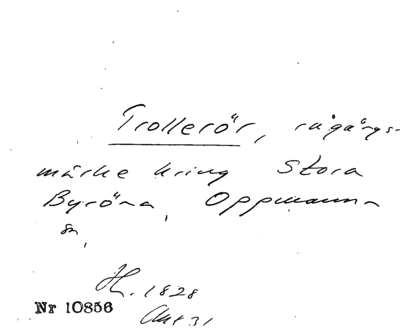 Trollerör, rågångs-
märke kring Stora
Byröna, Oppmanna
sn,
H. 1828
Akt 31
Nr 10856